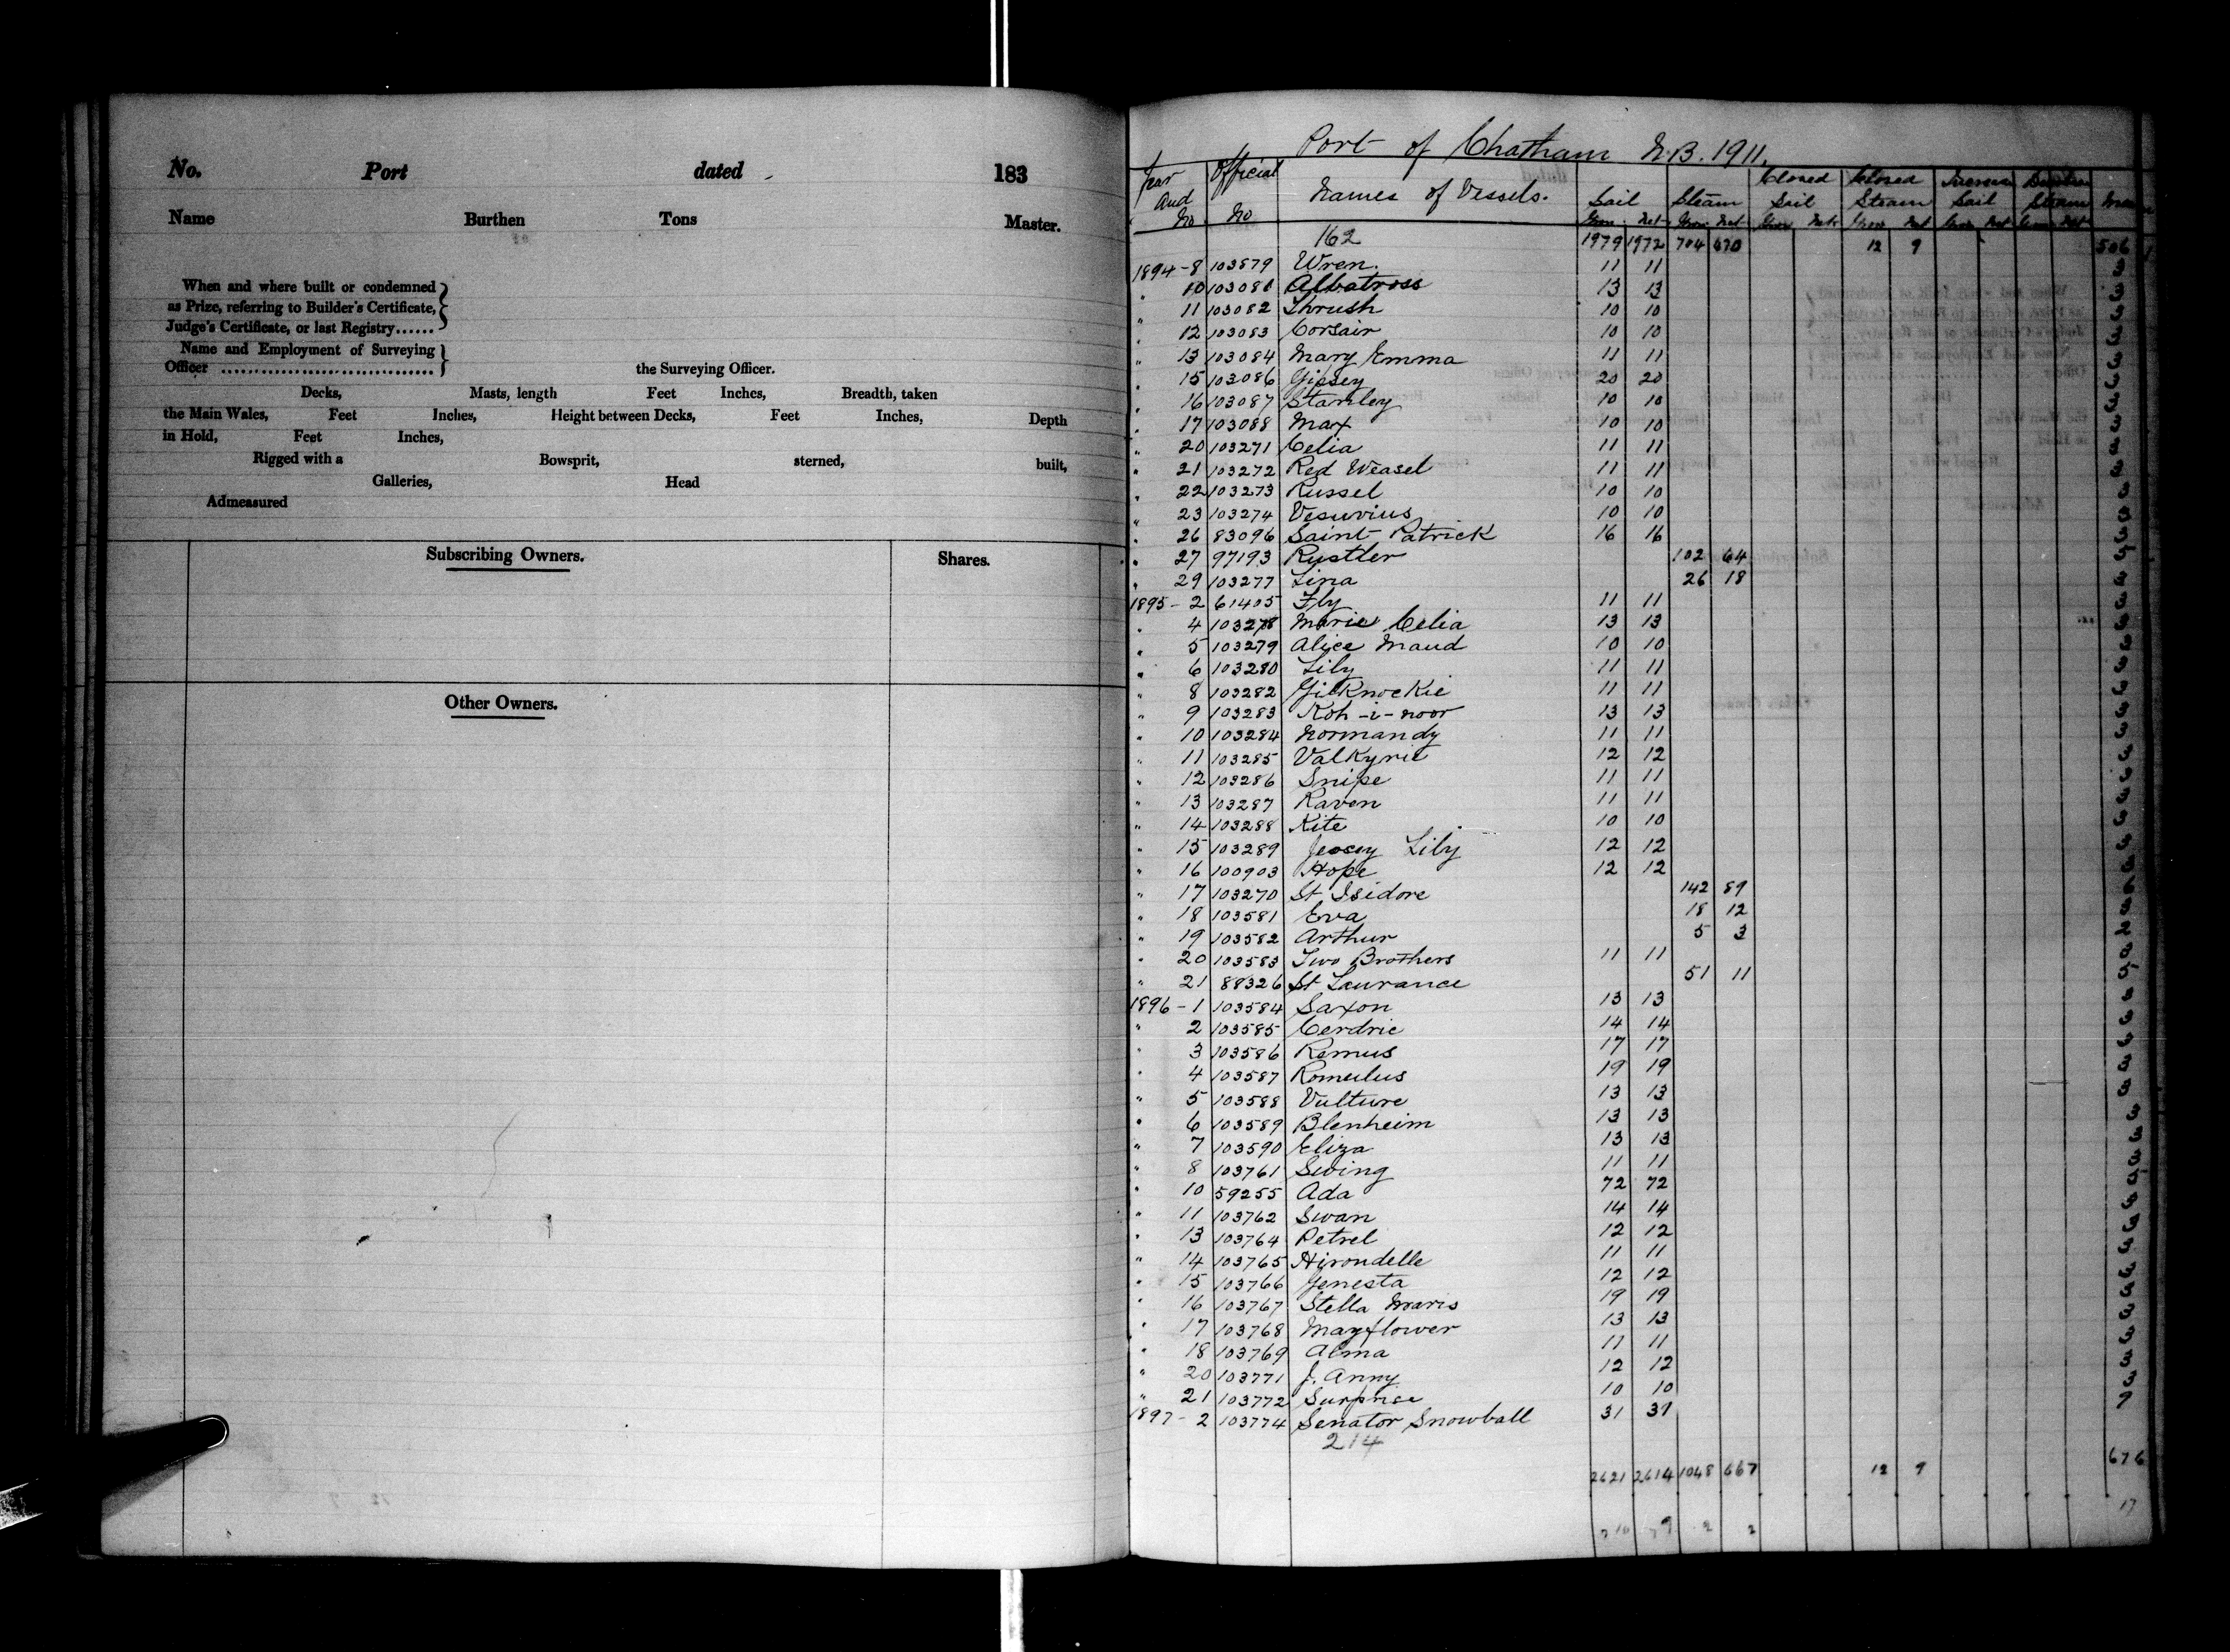 No. Port dated 183
Name Burthen Tons Master.
When and where built or condemned
as Prize, referring to Builder's Certificate,
Judge's Certificate, or last Registry......
Name and Employment of Surveying
Officer ................................. the Surveying Officer.
Decks, Masts, length Feet Inches, Breadth, taken
the Main Wales, Feet Inches, Height between Decks, Feet Inches, Depth
in Hold, Feet Inches,
Rigged with a Bowsprit, sterned, built,
Galleries, Head
Admeasured
Subscribing Owners. Shares.
Other Owners.
Port of Chatham N.B. 1911.
Year and No Official No Names of Vessels. Sail Steam Closed Sail Closed Steam Sail Steam
Gross Net Gross Net Gross Net Gross Net Gross Net Gross Net
162 1979 1972 704 470 12 9 506
1894-8 103879 Wren. 11 11 3
" 10 103081 Albatross 13 13 3
" 11 103082 Thrush 10 10 3
" 12 103083 Corsair 10 10 3
" 13 103084 Mary Emma 11 11 3
" 15 103086 Gipsey 20 20 3
" 16 103087 Stanley 10 10 3
" 17 103088 Max 10 10 3
" 20 103271 Celia 11 11 3
" 21 103272 Red Weasel 11 11 3
" 22 103273 Russel 10 10 3
" 23 103274 Vesuvius 10 10 3
" 26 83096 Saint Patrick 16 16 3
" 27 97193 Rustler 102 64
" 29 103277 Lina 26 18
1895-2 61405 Fly 11 11 3
" 4 103278 Marie Celia 13 13 3
" 5 103279 Alice Maud 10 10 3
" 6 103280 Lily 11 11 3
" 8 103282 Gilknockie 11 11 3
" 9 103283 Koh-i-noor 13 13 3
" 10 103284 Normandy 11 11 3
" 11 103285 Valkyrie 12 12 3
" 12 103286 Snipe 11 11 3
" 13 103287 Raven 11 11 3
" 14 103288 Kite 10 10 3
" 15 103289 Jersey Lily 12 12 3
" 16 100903 Hope 12 12 3
" 17 103270 St Isidore 142 89
" 18 103581 Eva 18 12
" 19 103582 Arthur 5 3
" 20 103583 Two Brothers 11 11 3
" 21 88326 St Laurance 51 11
1896-1 103584 Saxon 13 13 3
" 2 103585 Cerdric 14 14 3
" 3 103586 Remus 17 17 3
" 4 103587 Romulus 19 19 3
" 5 103588 Vulture 13 13 3
" 6 103589 Blenheim 13 13 3
" 7 103590 Eliza 13 13 3
" 8 103761 Swing 11 11 3
" 10 59255 Ada 72 72
" 11 103762 Swan 14 14 3
" 13 103764 Petrel 12 12 3
" 14 103765 Hirondelle 11 11 3
" 15 103766 Genesta 12 12 3
" 16 103767 Stella Maris 19 19 3
" 17 103768 Mayflower 13 13 3
" 18 103769 Alma 11 11 3
" 20 103771 J. Anny 12 12 3
" 21 103772 Surprise 10 10 3
1897-2 103774 Senator Snowball 31 31 7
214
2621 2614 1048 667 12 9 676
17